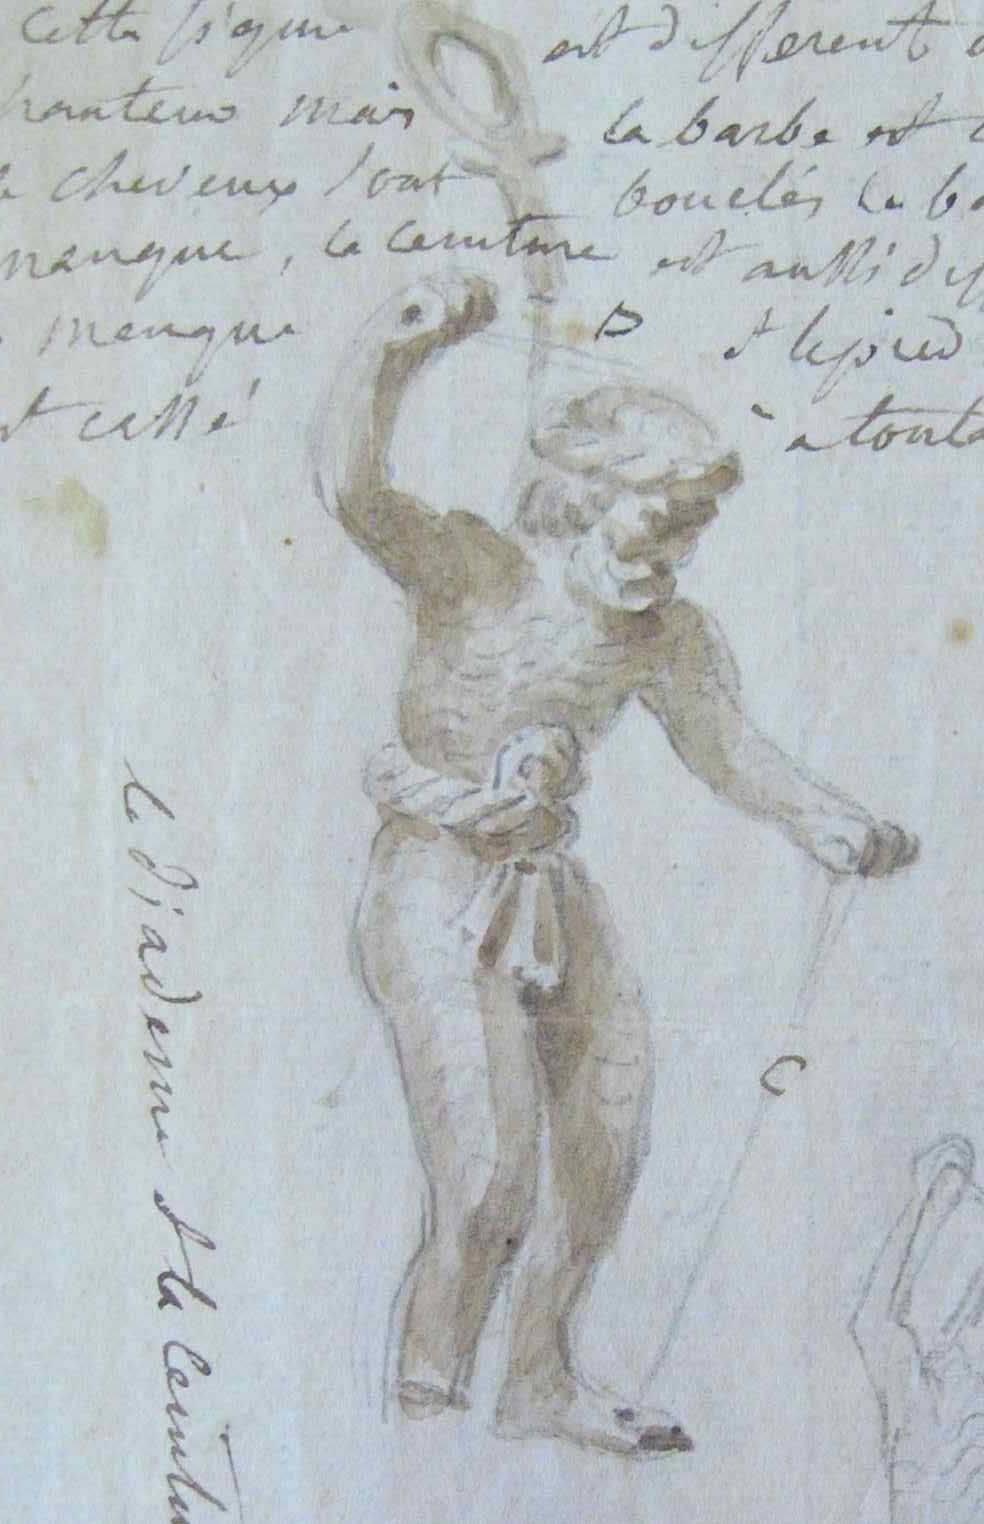 Cette figure est different
hauteur mais la barbe est
cheveux sont bouclés la
manque, la ceinture est aussi
manque B et le pied
est cassé à toute
C
le diademe et la